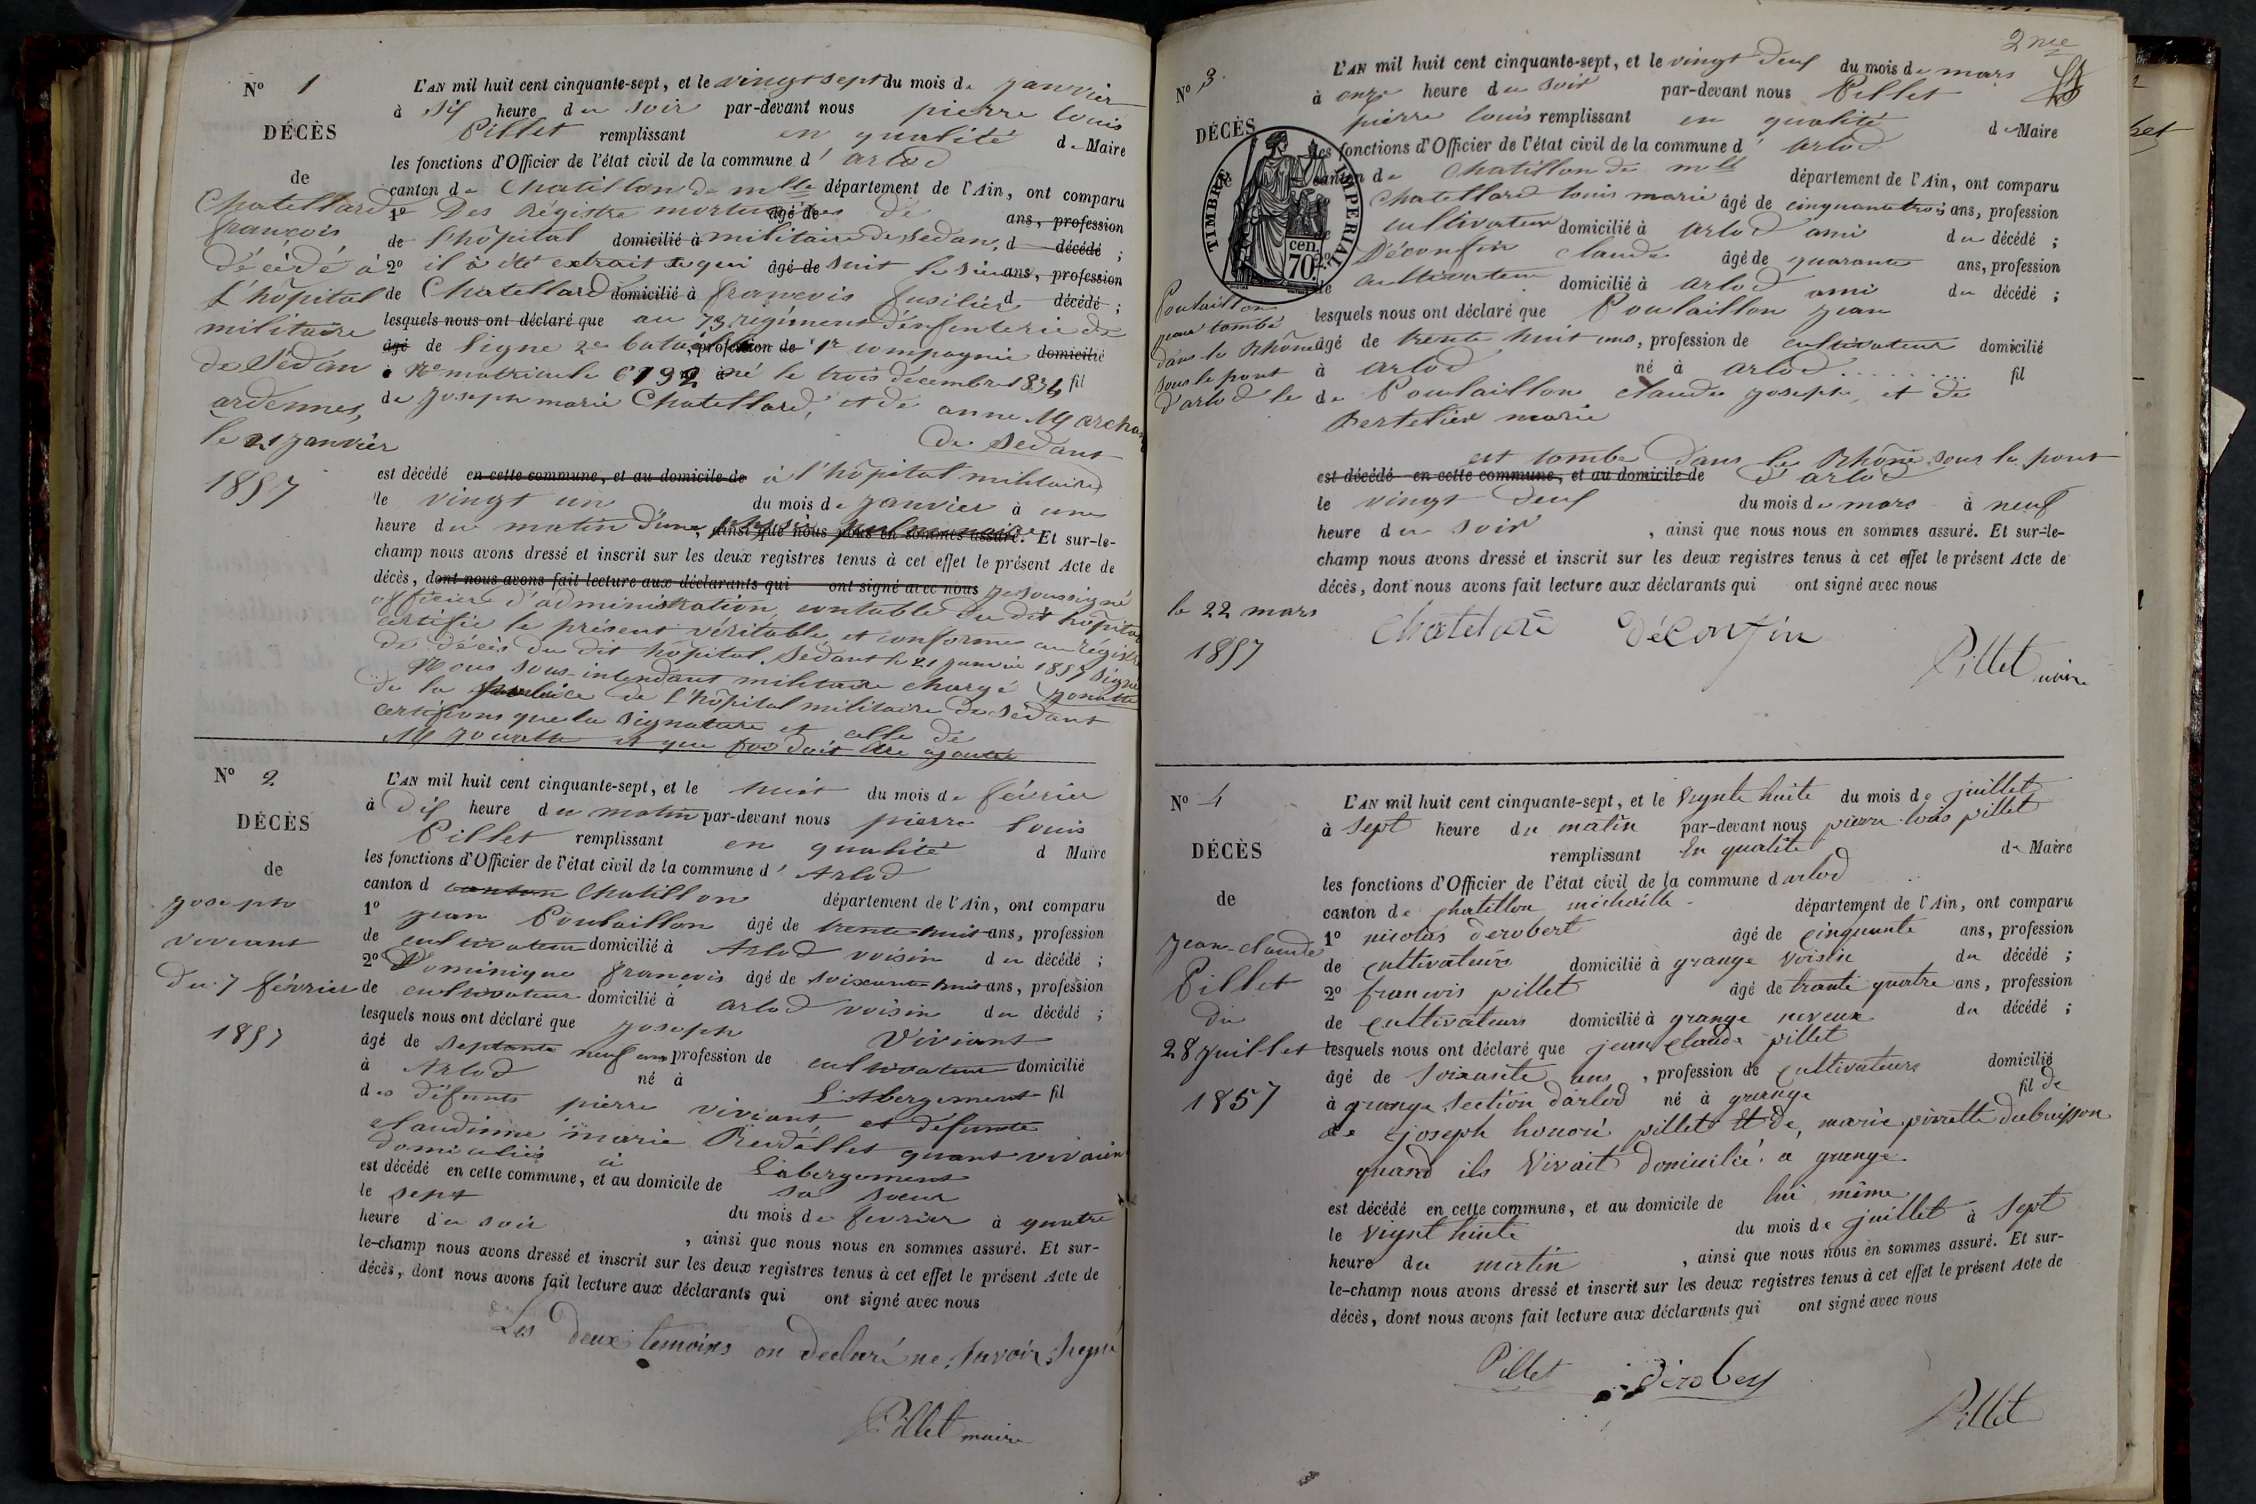 N° 1
DÉCÈS
de
Chatellard
françois
décédé à
l'hôpital
militaire
de Sédan
ardennes,
le 21 janvier
1857
L'AN mil huit cent cinquante-sept, et le vingt sept du mois de janvier
à six heure du soir par-devant nous pierre louis
Pillet remplissant en qualité de Maire
les fonctions d'Officier de l'état civil de la commune d'arlod
canton de Chatillon de mlle département de l'Ain, ont comparu
1° Des Régistre mortuaires de âgé de ans, profession
de l'hôpital domicilié à militaire de Sedan, d décédé ;
2° il à été extrait ce qui âgé de suit le sieur ans, profession
de Chatellard domicilié à françois fusilier d décédé ;
lesquels nous ont déclaré que au 73 regiment d'enfenterie de
âgé de ligne 2e bataillon, profession de 1r compagnie domicilié
à n° matricule 6192 né le trois décembre 1834 fil
de joseph marie Chatellard, et de anne Marchan
de Sedant
est décédé en cette commune, et au domicile de à l'hôpital militaire
le vingt un du mois de janvier à une
heure du matin d'une, ainsi que nous nous en sommes assuré. Et sur-le-
champ nous avons dressé et inscrit sur les deux registres tenus à cet effet le présent Acte de
décès, dont nous avons fait lecture aux déclarants qui ont signé avec nous je soussigné
officier d'administration contable du dit hôpital
certifie le présent véritable et conforme au registre
de décès du dit hôpital Sedant le 21 janvier 1857 signé
Nous sous-intendant militaire chargé
de la police de l'hôpital militaire de Sédant
certifions que la signature et celle de
M et que foi doit être ajoutée
N° 2
DÉCÈS
de
joseph
viviant
du 7 février
1857
L'AN mil huit cent cinquante-sept, et le huit du mois de février
à dix heure du matin par-devant nous pierre louis
Pillet remplissant en qualité d Maire
les fonctions d'Officier de l'état civil de la commune d'Arlod
canton d canton Chatillon département de l'Ain, ont comparu
1° jean Poulaillon âgé de trente huit ans, profession
de cultivateur domicilié à Arlod voisin du décédé ;
2° Dominique françois âgé de soixante huit ans, profession
de cultivateur domicilié à arlod voisin du décédé ;
lesquels nous ont déclaré que joseph Viviant
âgé de septante neuf ans profession de cultivateur domicilié
à Arlod né à L'Abergement fil
des défunts pierre viviant et défunte
claudinne marie Rendellet quant vivaient
domiciliés à L'abergement
est décédé en cette commune, et au domicile de sa soeur
le sept du mois de fevrier à quatre
heure du soir, ainsi que nous nous en sommes assuré. Et sur-
le-champ nous avons dressé et inscrit sur les deux registres tenus à cet effet le présent Acte de
décès, dont nous avons fait lecture aux déclarants qui ont signé avec nous
Les deux temoins on declaré ne savoir signé
Pillet maire
2me
N° 3
DÉCÈS
TIMBRE IMPERIAL
70 cen.
Poulaillon
jean tombé
dans le Rhône
sous le pont
d'arlod le
le 22 mars
1857
L'AN mil huit cent cinquante-sept, et le vingt deux du mois de mars
à onze heure du soir par-devant nous Pillet
pierre louis remplissant en qualité de Maire
les fonctions d'Officier de l'état civil de la commune d'arlod
canton de Chatillon de mlle département de l'Ain, ont comparu
Chatellard louis marie âgé de cinquante trois ans, profession
de cultivateur domicilié à arlod ami du décédé ;
Déconfin claude âgé de quarante ans, profession
de cultivateur domicilié à arlod ami du décédé ;
lesquels nous ont déclaré que Poulaillon jean
âgé de trente huit ans, profession de cultivateur domicilié
à arlod né à arlod fil
de Poulaillon claude joseph, et de
Bertelier marie
est tombé dans le Rhône sous le pont
est décédé en cette commune, et au domicile de d'arlod
le vingt deux du mois de mars à neuf
heure du soir, ainsi que nous nous en sommes assuré. Et sur-le-
champ nous avons dressé et inscrit sur les deux registres tenus à cet effet le présent Acte de
décès, dont nous avons fait lecture aux déclarants qui ont signé avec nous
Chatelard déconfin
Pillet maire
N° 4
DÉCÈS
de
jean-claude
Pillet
du
28 juillet
1857
L'AN mil huit cent cinquante-sept, et le vignte huite du mois de juillet
à sept heure du matin par-devant nous pierre louis pillet
remplissant en qualité de Maire
les fonctions d'Officier de l'état civil de la commune d arlod
canton de chatillon michaille département de l'Ain, ont comparu
1° nicolas derobert âgé de cinquante ans, profession
de cultivateurs domicilié à grange voisin du décédé ;
2° francois pillet âgé de trante quatre ans, profession
de cultivateurs domicilié à grange neveux du décédé ;
lesquels nous ont déclaré que jean claude pillet
âgé de soixante ans, profession de cultivateurs domicilié
à grange section d'arlod né à grange fil de
de joseph honoré pillet et de, marie pierrette dubuisson
quand ils vivait domicilié a grange
est décédé en cette commune, et au domicile de lui même
le vignt huite du mois de juillet à sept
heure du matin, ainsi que nous nous en sommes assuré. Et sur-
le-champ nous avons dressé et inscrit sur les deux registres tenus à cet effet le présent Acte de
décès, dont nous avons fait lecture aux déclarants qui ont signé avec nous
Pillet
Pillet